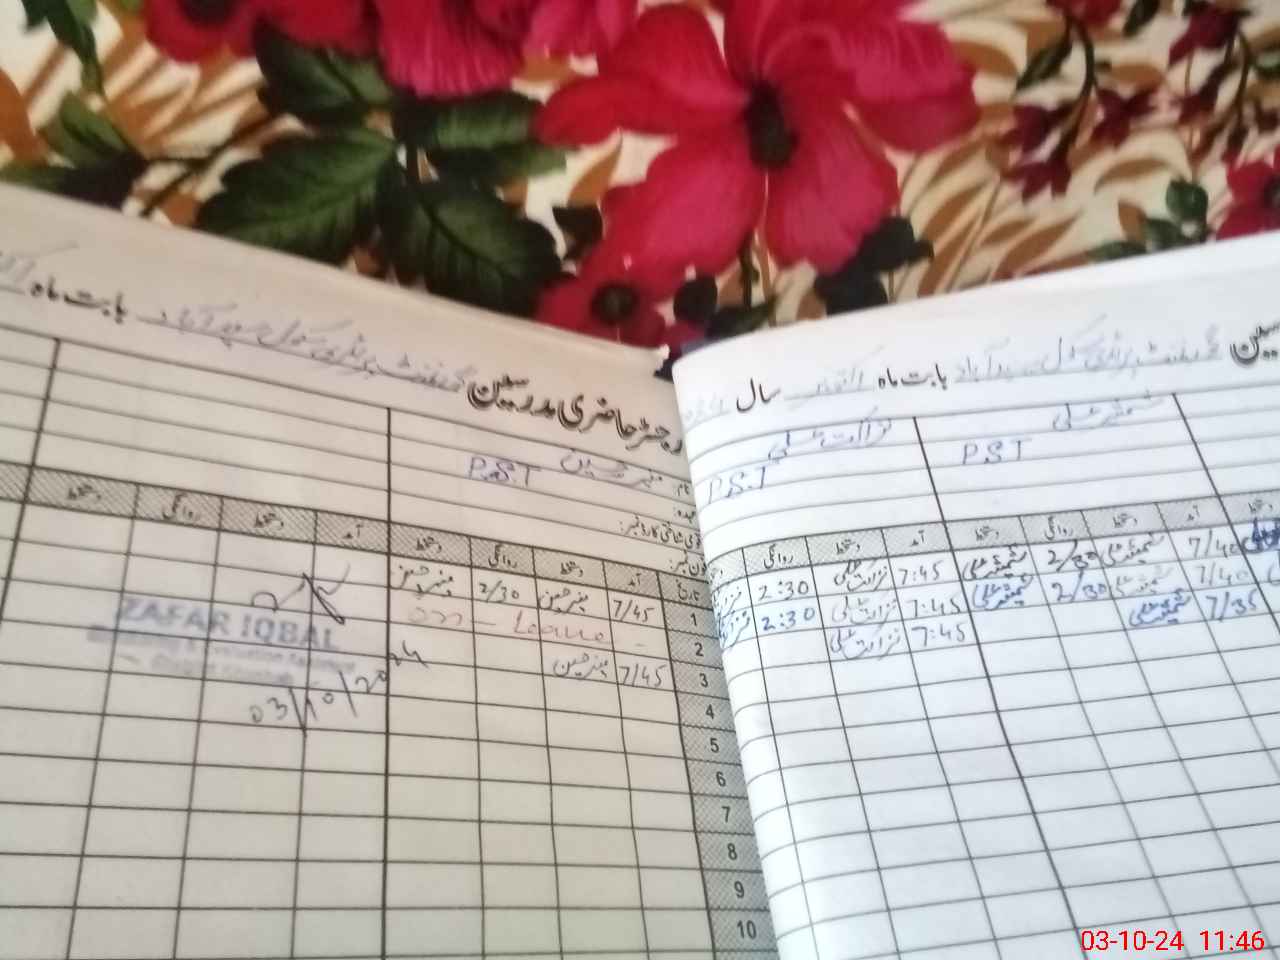 رجسٹر حاضری مدرسین گورنمنٹ پرائمری سکول بابت ماه
گورنمنٹ پرائمری سکول بابت ماه اکتوبر سال
نام: منیر حسین P.S.T
نزاکت علی P.S.T
شمشیر علی P.S.T
عہدہ:
قومی شناختی کارڈ نمبر:
فون نمبر:
تاریخ آمد دستخط روانگی دستخط آمد دستخط روانگی دستخط
دستخط آمد دستخط روانگی دستخط آمد دستخط روانگی
1 7/45 منیر حسین 2/30 منیر حسین
2 on - Leave -
3 7/45 منیر حسین
4
5
6
7
8
9
10
ZAFAR IQBAL
03/10/2024
7/40 شمشیر علی 2/30 شمشیر علی 7:45 نزاکت علی 2:30
7/40 شمشیر علی 2/30 شمشیر علی 7:45 نزاکت علی 2:30
7/35 شمشیر علی 7:45 نزاکت علی
03-10-24 11:46